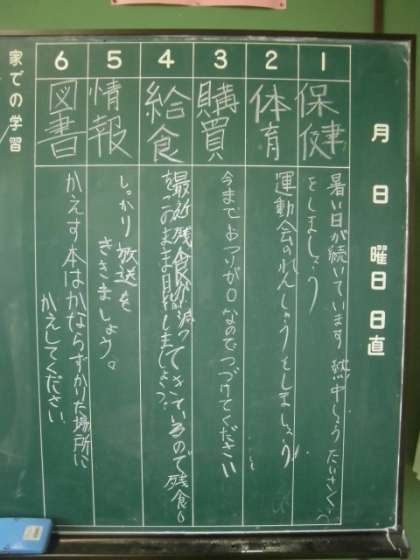 月 日 曜日 日直
1
保健
暑い日が続いています 熱中しょう たいさく
をしましょう
2
体育
運動会のれんしゅうをしましょう
3
購買
今までおつりが0なのでつづけてください
4
給食
最近残食が減ってきているので残食0
をこのまま目指しましょう
5
情報
しっかり放送を
ききましょう。
6
図書
かえす本はかならずかりた場所に
かえしてください
家での学習